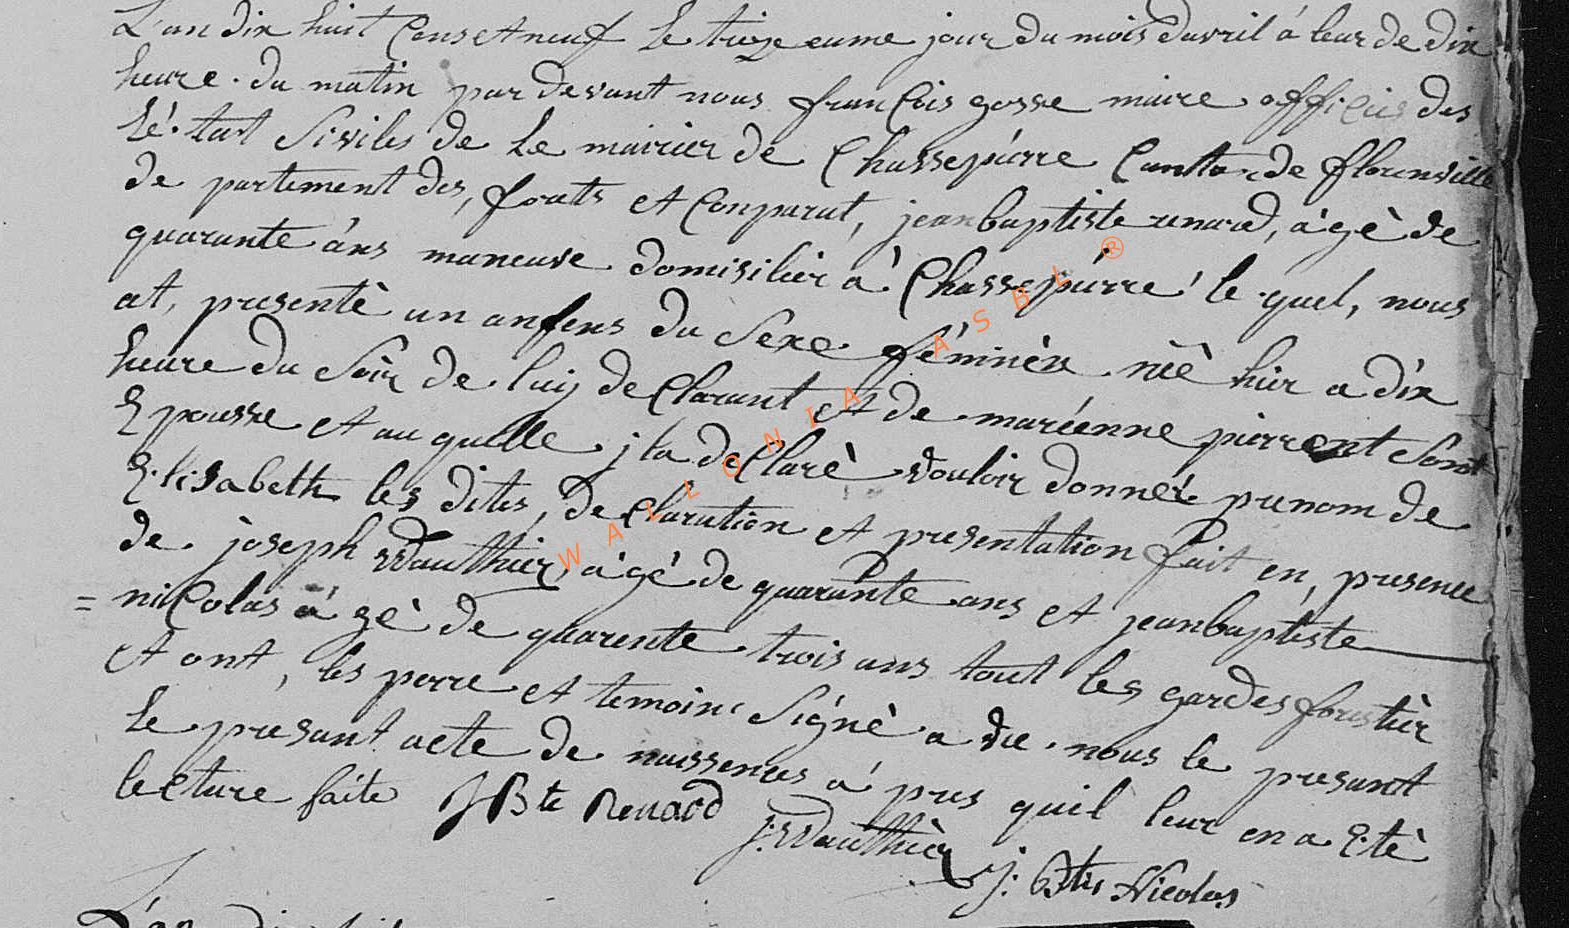 L'an dix huit Cens et neuf le treizeeume jour du mois davril á leur de dix
heure du matin par devant nous franCois gosse maire offiCies des
lé tat Siviles de le mairier de Chassepierre Canton de florenville
de partement des, forats et Conparut, jeanbaptiste renard, ágè de
quarante áns maneuve domisilier à Chassepierre le quel, nous
at, presentè un anfens du Sexe féminèn nèê hier a dix
heure du Soir de luij de Clarant et de mariéanne pierrent Sont
Epousse et au quelle jl a de Clarè vouloir donner prenom de
Elisabeth les dites, de Claration et presentation fait en, presence
de joseph Wauthier, ágè de quarante ans et jeanbaptiste
= niColas á gè de quarente trois ans tout les gardes forestièr
et ont, les perre et temoins Signè a vec nous le presant
le presant acte de naissences á pres quil leur en a Etè
leCture faite JBte Renard
J: Wauthièr
J: Btis Nicolas
L'an dix huit
WALLONIA ASBL ®